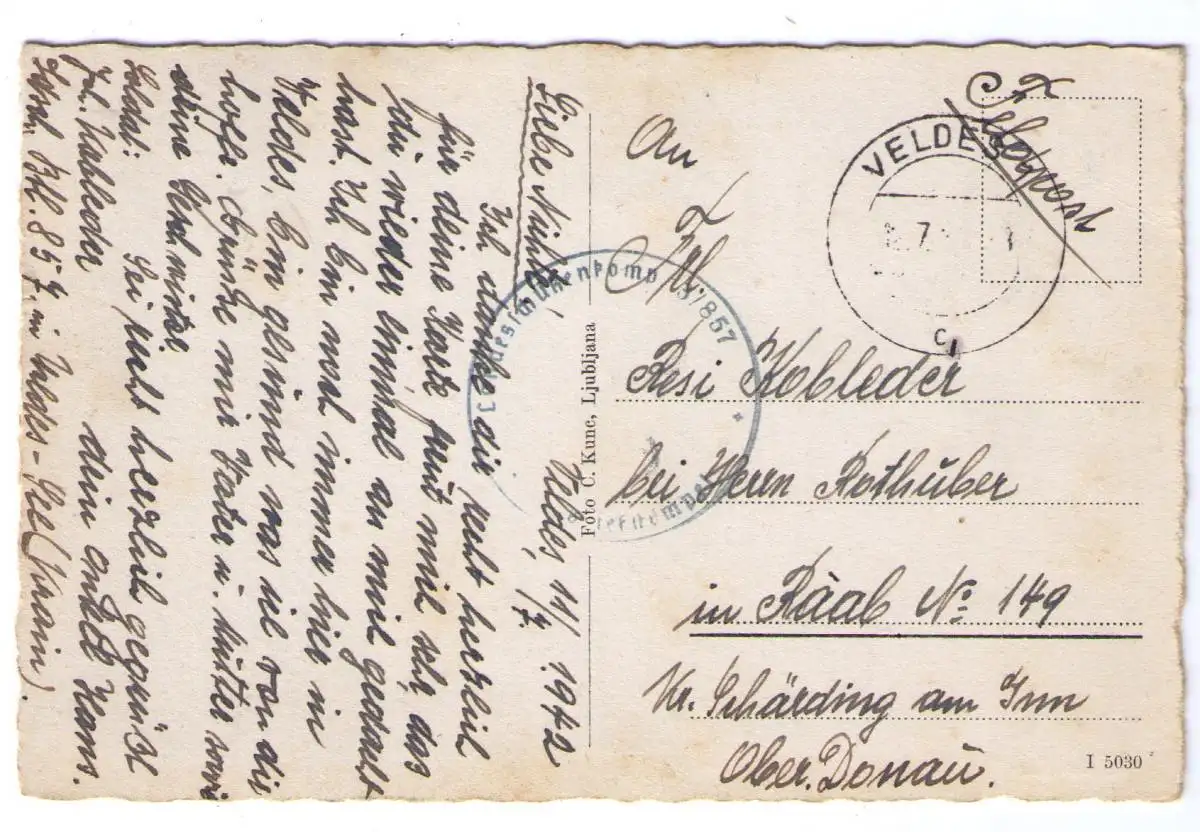 Veldes, 11/7. 1942
Liebe Nichte!
Ich danke dir recht herzlich
für deine Karte freut mich sehr das
du wieder einmal an mich gedacht
hast. Ich bin noch immer hier in
Veldes, bin gesund was ich von dir
hoffe. Grüße mir Vater u. Mutter sowie
deine
Sei recht herzlich gegrüßt
dein Onkel Hans.
Soldat:
Joh. Kobleder
Lds. Btl. 857, in Veldes-See (Krain).
An
Frl.
Resi Kobleder
bei Herrn Rothuber
in Raab No 149
Kr. Schärding am Inn
Ober. Donau.
Feldpost
VELDES
7
c
Landesschützenkomp. 3/857
Briefstempel
Foto C. Kunc, Ljubljana
I 5030